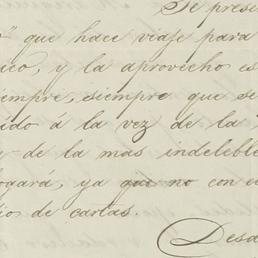 Se prese
" que hace viaje para
ico, y la aprovecho es
iempre, siempre que se
ido á la vez de la
y de la mas indeleble
logará, ya que no con e
ios de cartas.
Desd